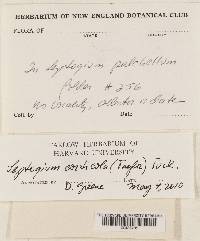 HERBARIUM OF NEW ENGLAND BOTANICAL CLUB
FLORA OF
STATE
In Leptogium pulchellum
folder # 256
no locality, collector or date
COLL. BY
DATE
FARLOW HERBARIUM OF
HARVARD UNIVERSITY
Leptogium corticola (Taylor) Tuck.
D. Greene
May 7, 2010